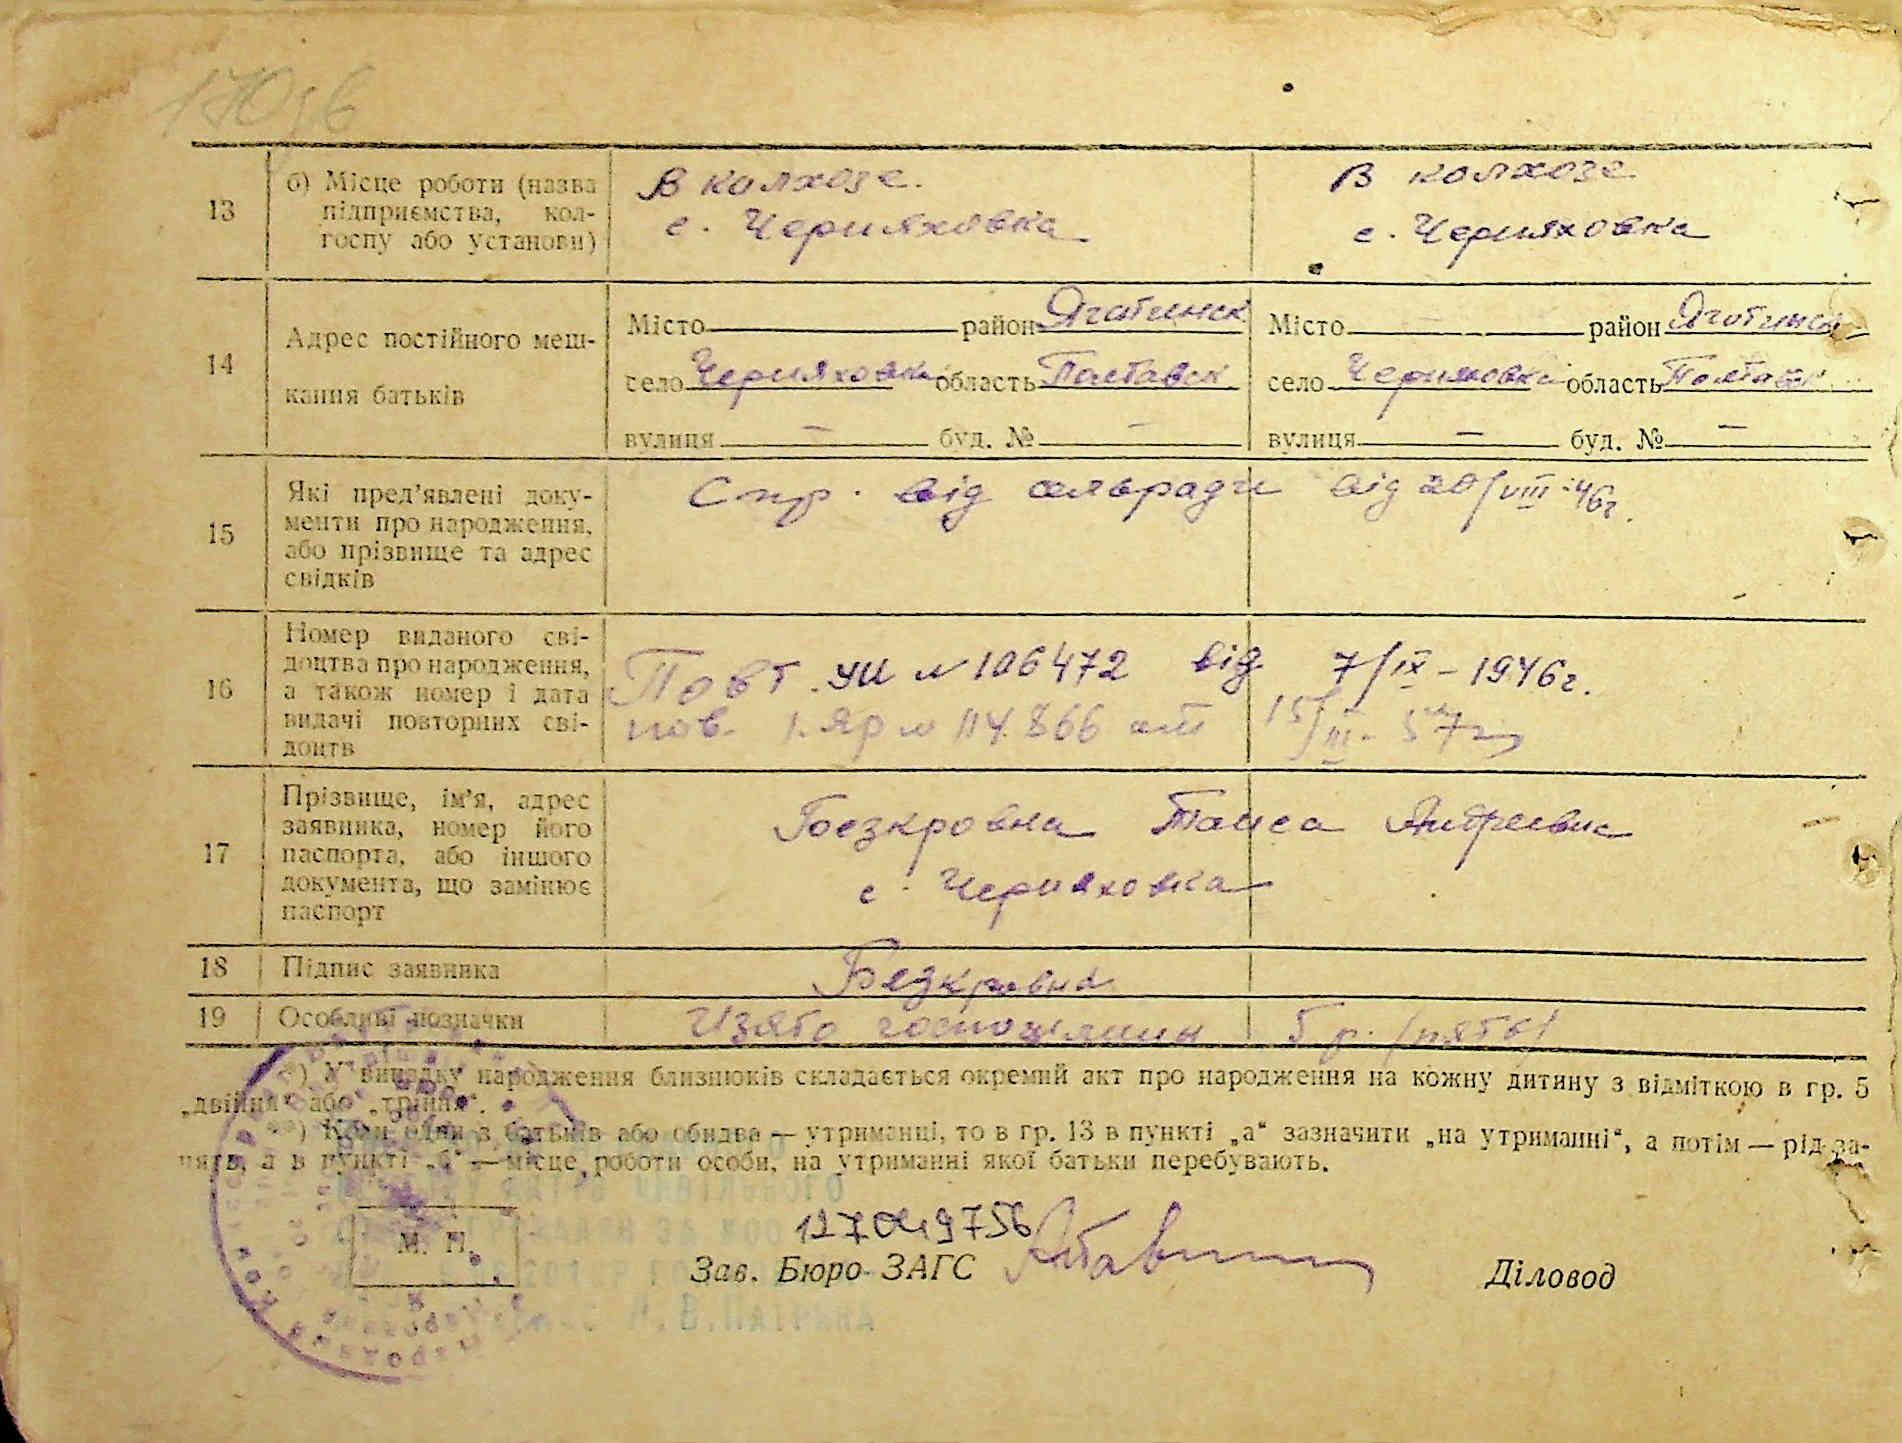 13
б) Місце роботи (назва
підприємства, кол-
госпу або установи)
В колхозе.
с. Черняховка
В колхозе
с. Черняховка
14
Адрес постійного меш-
кання батьків
Місто район Яготинск
село Черняховка область Полтавск
вулиця — буд. № —
Місто — район Яготинск
село Черняховка область Полтавск
вулиця — буд. № —
15
Які пред’явлені доку-
менти про народження,
або прізвище та адрес
свідків
Спр. від сільради від 20/VIII-46г.
16
Номер виданого сві-
доцтва про народження,
а також номер і дата
видачі повторних сві-
доцтв
Повт. УИ № 106472 від 7/IX-1946г.
пов. ЯР № 114866 от 15/III-57г
17
Прізвище, ім’я, адрес
заявника, номер його
паспорта, або іншого
документа, що замінює
паспорт
Безкровна Таиса Андреевна
с. Черняховка
18
Підпис заявника
Безкровна
19
Особливі позначки
Узято госпошлини 5 р. (пять)
*) У випадку народження близнюків складається окремий акт про народження на кожну дитину з відміткою в гр. 5
„двійня“ або „трійня“.
**) Коли один з батьків або обидва — утриманці, то в гр. 13 в пункті „а“ зазначити „на утриманні“, а потім — рід за-
нять, а в пункті „б“ — місце роботи особи, на утриманні якої батьки перебувають.
М. П.
Зав. Бюро ЗАГС
Діловод